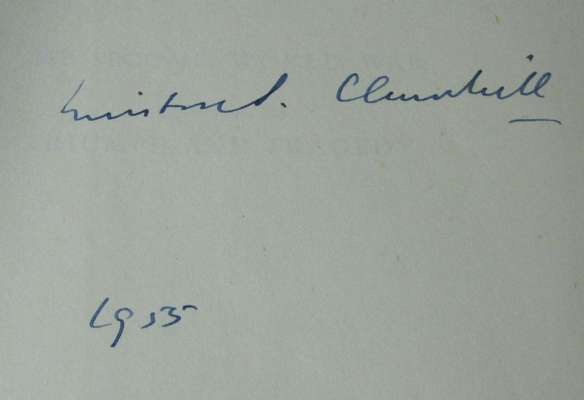 Winston S. Churchill
1955